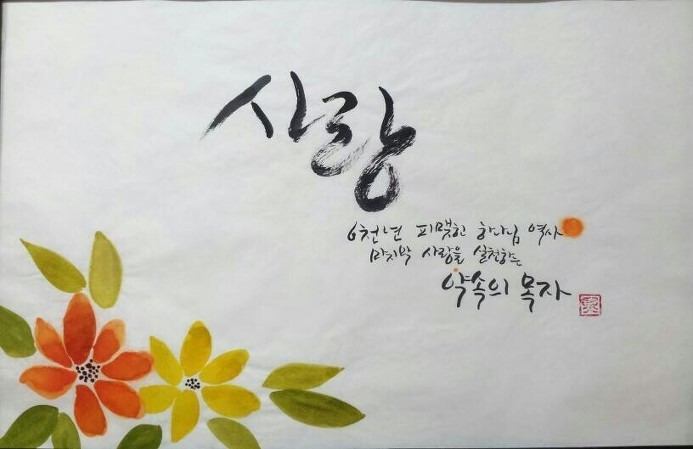 사랑
6천년 피맺힌 하나님 역사
마지막 사랑을 실천하는
약속의 목자